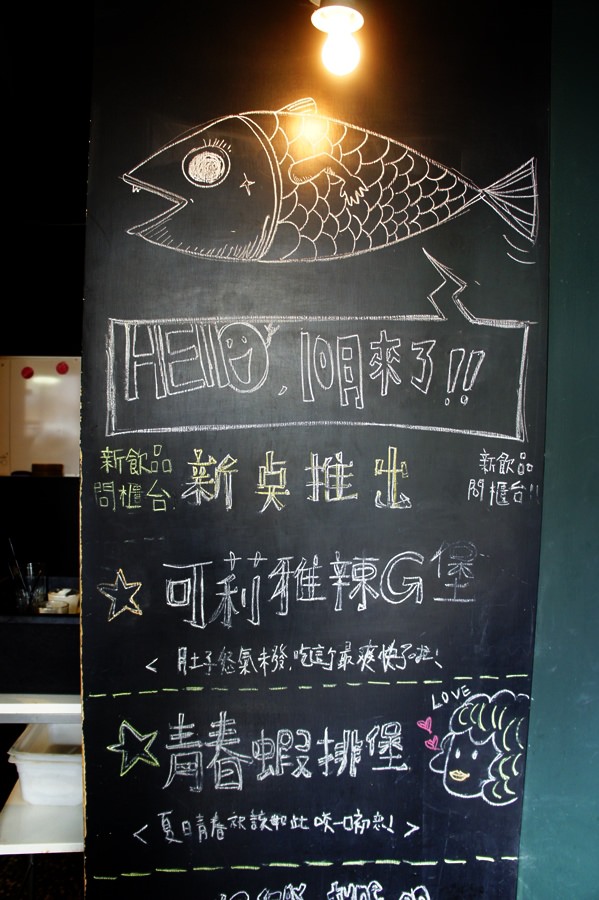 HEllO, 10月來了!!
新飲品
問櫃台
新桌推出
新飲品
問櫃台!!
☆ 可莉雅辣G堡
< 肚子怒氣未發,吃這個最痛快了啦!
LOVE
☆ 青春蝦排堡
< 夏日青春就該如此咬一口初戀! >